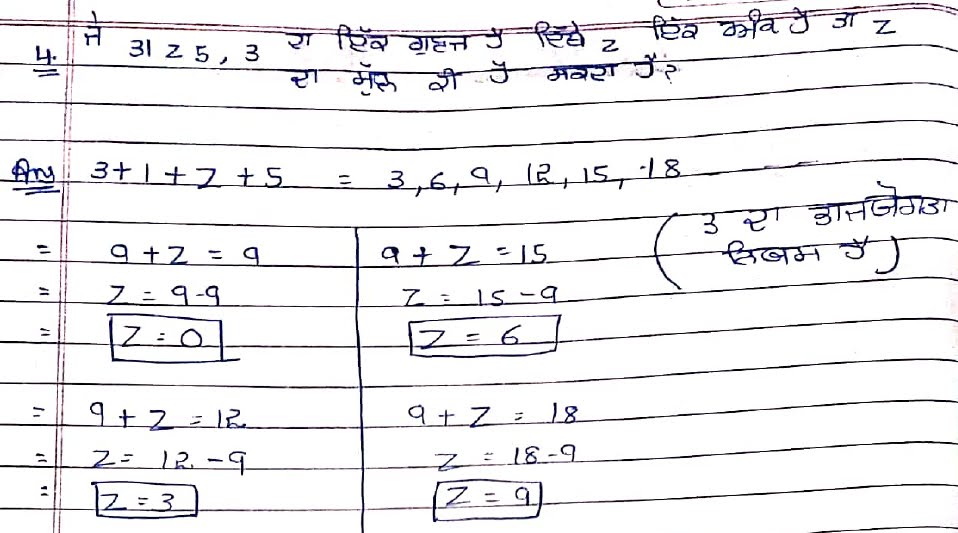 4. ਜੇ 31z5, 3 ਦਾ ਇੱਕ ਗੁਣਜ ਹੈ ਜਿੱਥੇ z ਇੱਕ ਅੰਕ ਹੈ ਤਾਂ z
ਦਾ ਮੁੱਲ ਕੀ ਹੋ ਸਕਦਾ ਹੈ?
Ans 3+1+z+5 = 3, 6, 9, 12, 15, 18
(3 ਦਾ ਭਾਜਯੋਗਤਾ
ਨਿਯਮ ਹੈ)
= 9+z = 9
= z = 9-9
= z = 0
9+z = 15
z = 15-9
z = 6
= 9+z = 12
= z = 12-9
= z = 3
9+z = 18
z = 18-9
z = 9